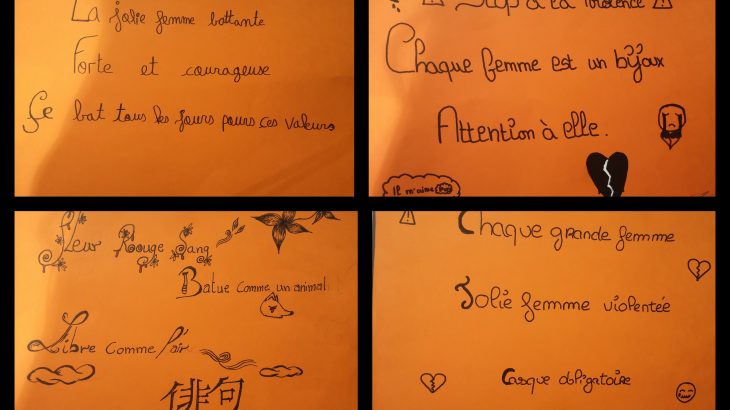 La jolie femme battante
Forte et courageuse
Se bat tous les jours pours ces valeurs
Stop à la violence
Chaque femme est un bijoux
Attention à elle.
Il m'aime
Fleur Rouge Sang
Batue comme un animal
Libre comme l'air
俳句
Chaque grande femme
Jolie femme violentée
Casque obligatoire